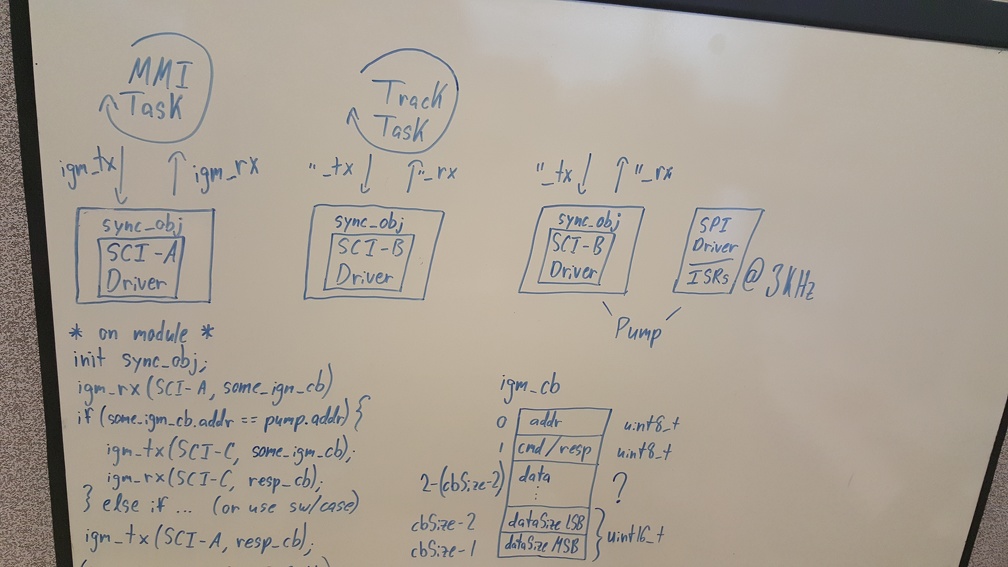 MMI
Task
Track
Task
igm_tx igm_rx
"_tx "_rx
"_tx "_rx
sync_obj
SCI-A
Driver
sync_obj
SCI-B
Driver
sync_obj
SCI-B
Driver
SPI
Driver
ISRs @ 3KHz
Pump
* on module *
init sync_obj;
igm_rx (SCI-A, some_igm_cb)
if (some_igm_cb.addr == pump.addr) {
igm_tx (SCI-C, some_igm_cb);
igm_rx (SCI-C, resp_cb);
} else if ... (or use sw/case)
igm_tx (SCI-A, resp_cb);
igm_cb
0 addr uint8_t
1 cmd/resp uint8_t
2-(cbSize-2) data ?
⋮
cbSize-2 dataSize LSB
cbSize-1 dataSize MSB
} uint16_t